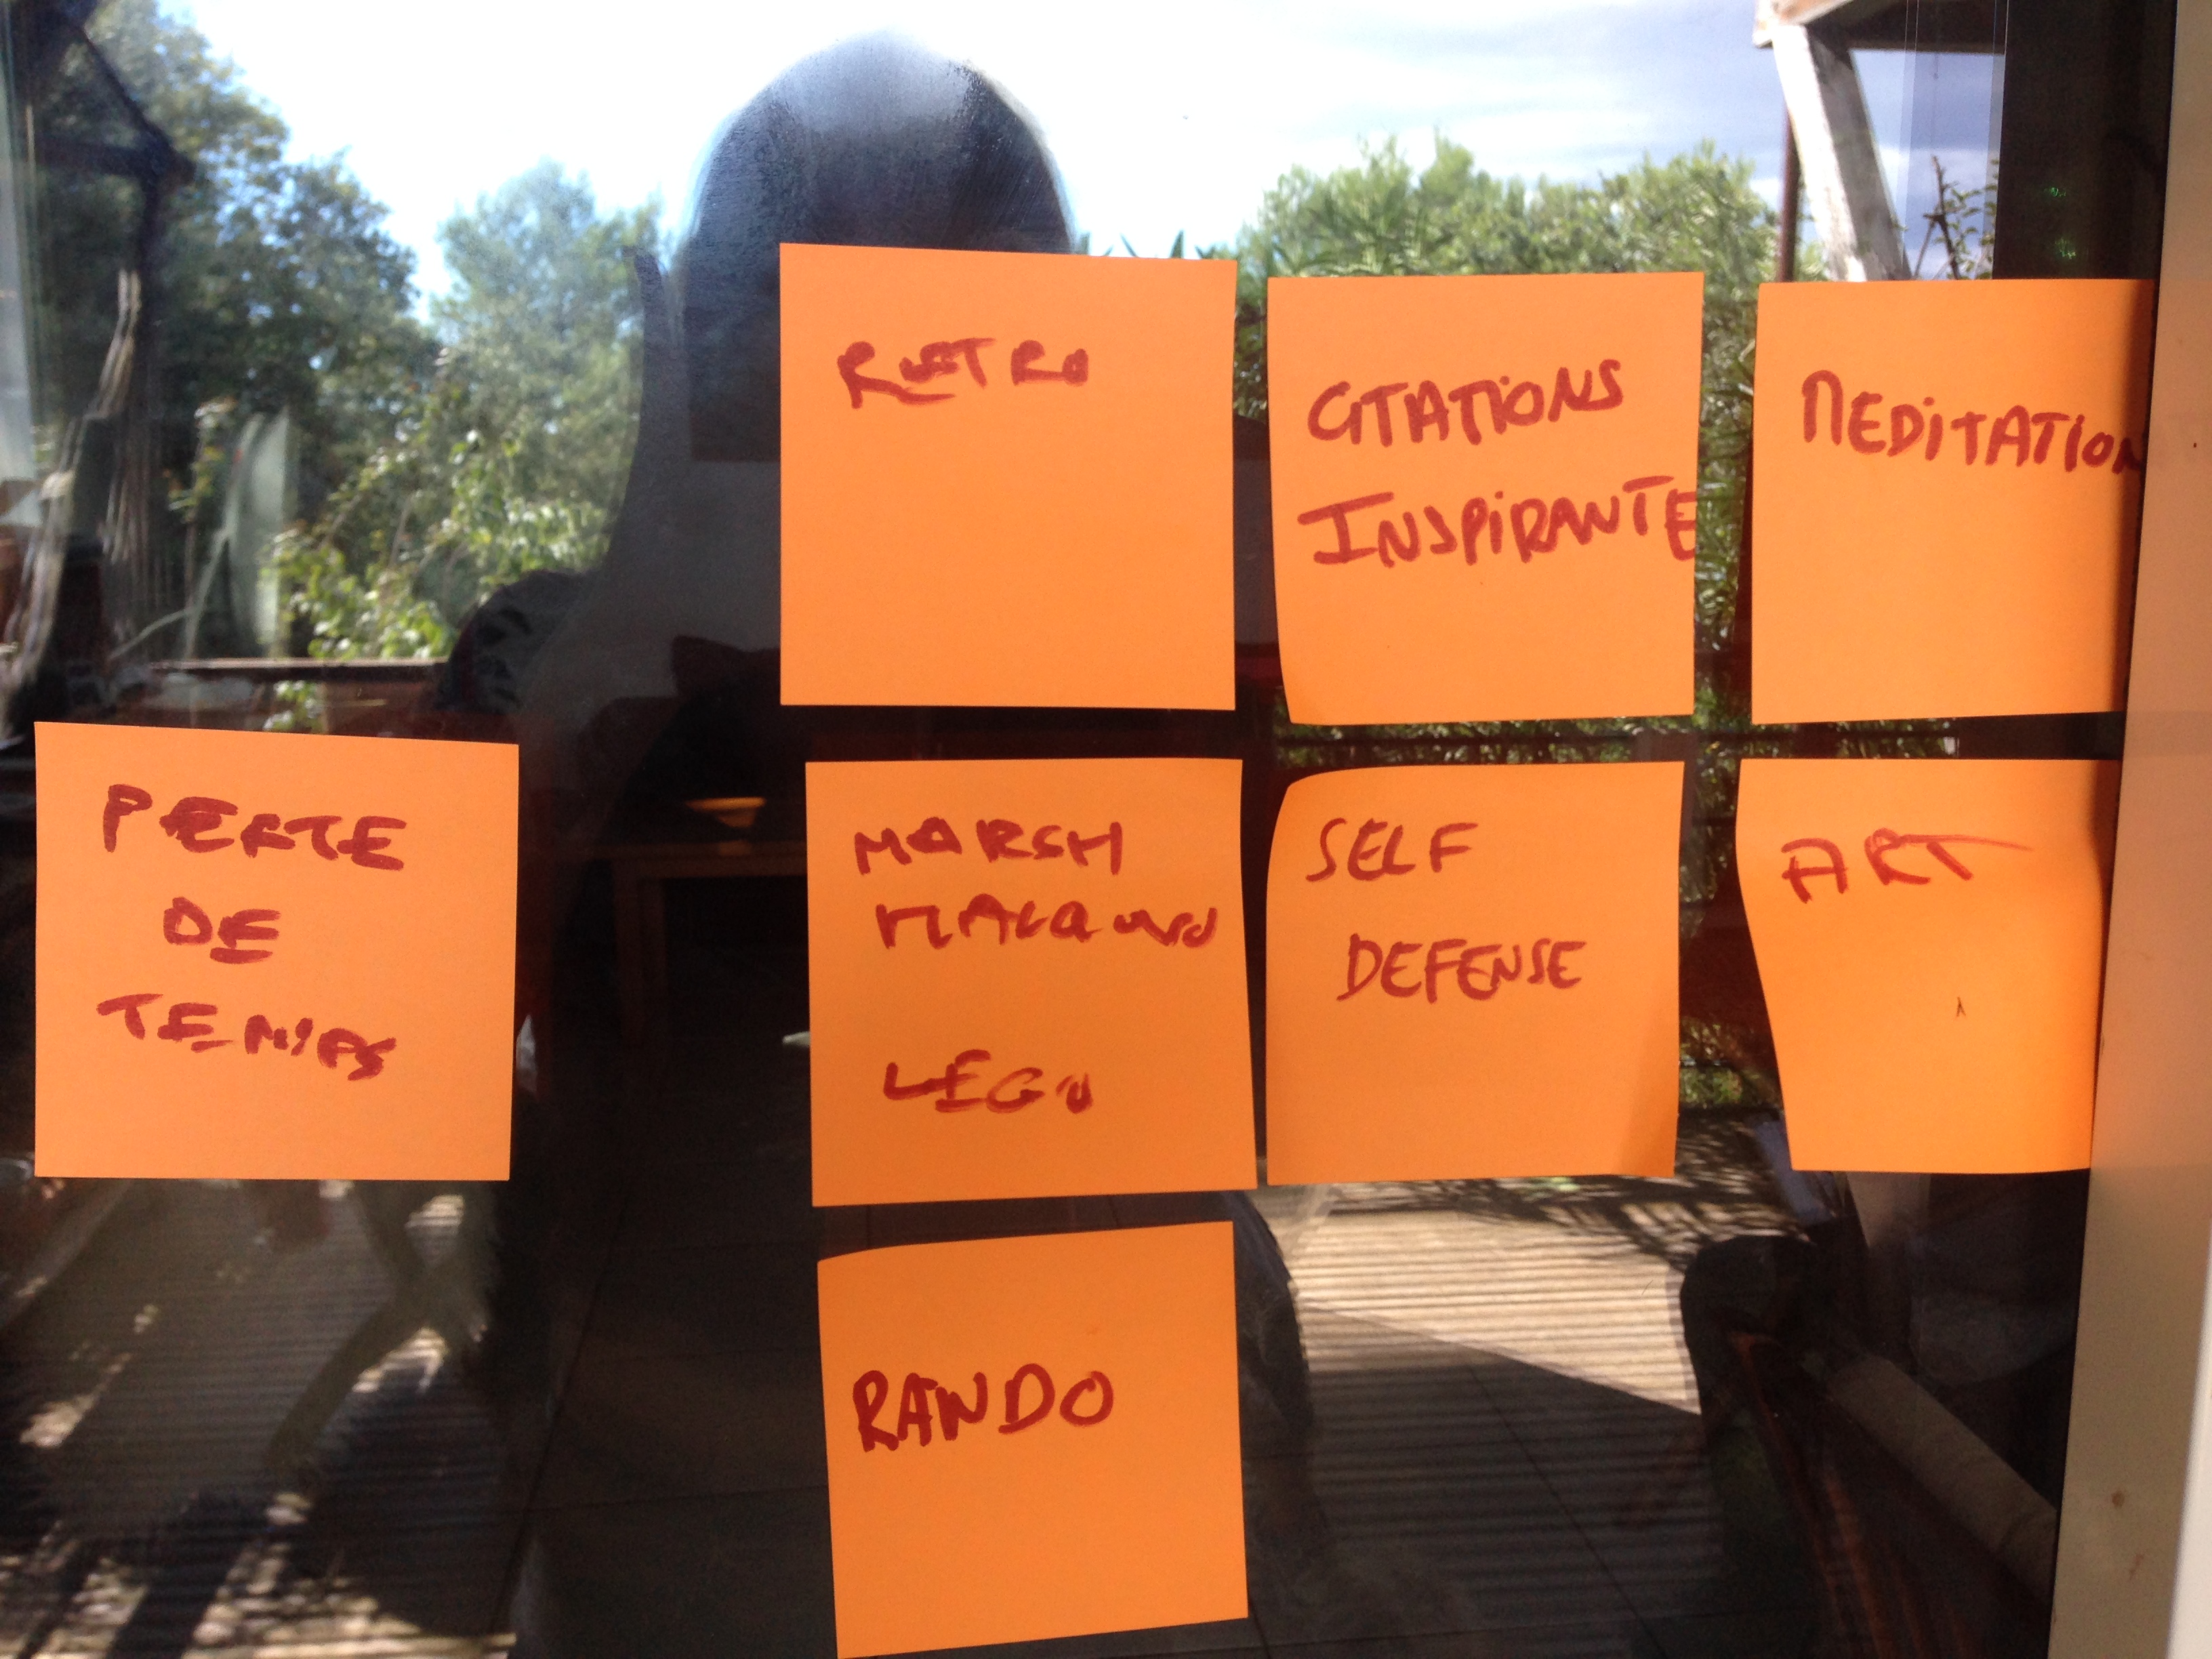 RETRO
CITATIONS
INSPIRANTE
MEDITATION
PERTE
DE
TEMPS
MARSH
MALOWW
LEGO
SELF
DEFENSE
ART
RANDO